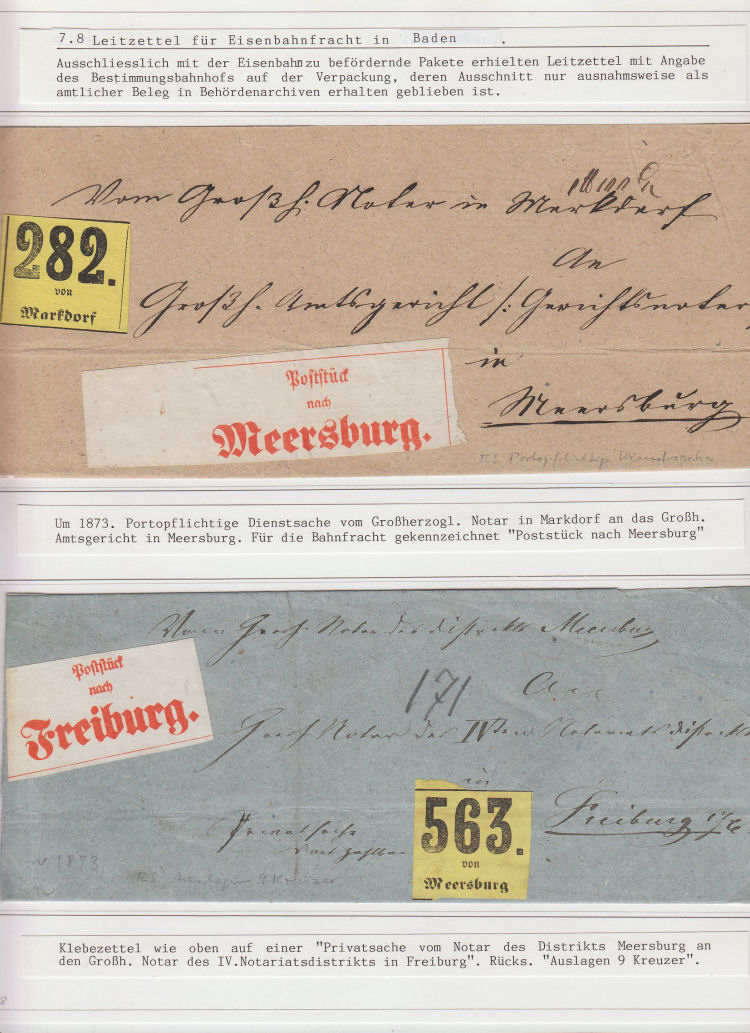 7.8 Leitzettel für Eisenbahnfracht in Baden .
Ausschliesslich mit der Eisenbahn zu befördernde Pakete erhielten Leitzettel mit Angabe
des Bestimmungsbahnhofs auf der Verpackung, deren Ausschnitt nur ausnahmsweise als
amtlicher Beleg in Behördenarchiven erhalten geblieben ist.
Vom Großh. Notar in Markdorf
An
Großh. Amtsgericht /: Gerichtsnotar
in
Meersburg
282.
von
Markdorf
Poststück
nach
Meersburg.
RS. Portopflichtige Dienstsache
Um 1873. Portopflichtige Dienstsache vom Großherzogl. Notar in Markdorf an das Großh.
Amtsgericht in Meersburg. Für die Bahnfracht gekennzeichnet "Poststück nach Meersburg"
Vom Großh. Notar des Distrikts Meersburg
Poststück
nach
Freiburg.
171
An
Großh. Notar des IVten Notariatsdistrikts
in
Freiburg
Privatsache
563.
von
Meersburg
1873
RS Auslagen 9 Kreuzer
Klebezettel wie oben auf einer "Privatsache vom Notar des Distrikts Meersburg an
den Großh. Notar des IV.Notariatsdistrikts in Freiburg". Rücks. "Auslagen 9 Kreuzer".
8